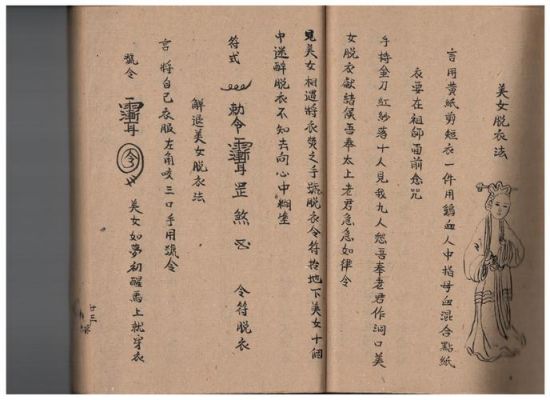 美女脱衣法
言用黄紙剪短衣一件用鷄血人中指母血混合點紙
衣要在祖師面前念咒
手持金刀紅紗落十人見我九人愁吾奉老君作洞口美
女脱衣献結侯吾奉太上老君急急如律令
見美女相遇將衣焚之手號脱衣令符拾地下美女十個
中迷醉脱衣不知去向心中糊塗
符式
勅令
罡煞
令符脱衣
解退美女脱衣法
言將自己衣服左角咬三口手用號令
號令
令
美女如夢初醒馬上就穿衣
廿三